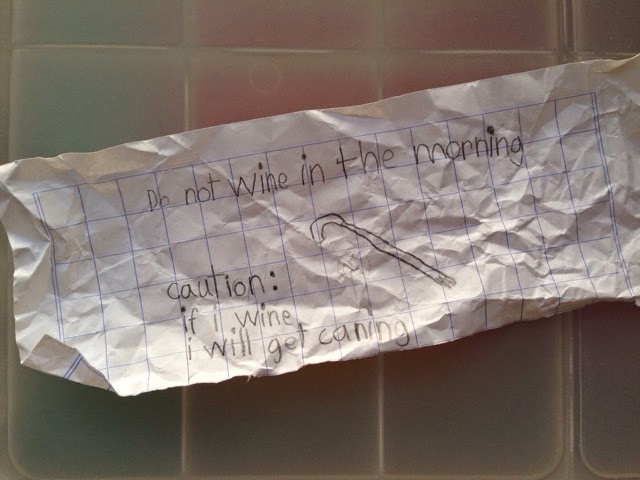 Do not wine in the morning
caution:
if i wine
i will get caning